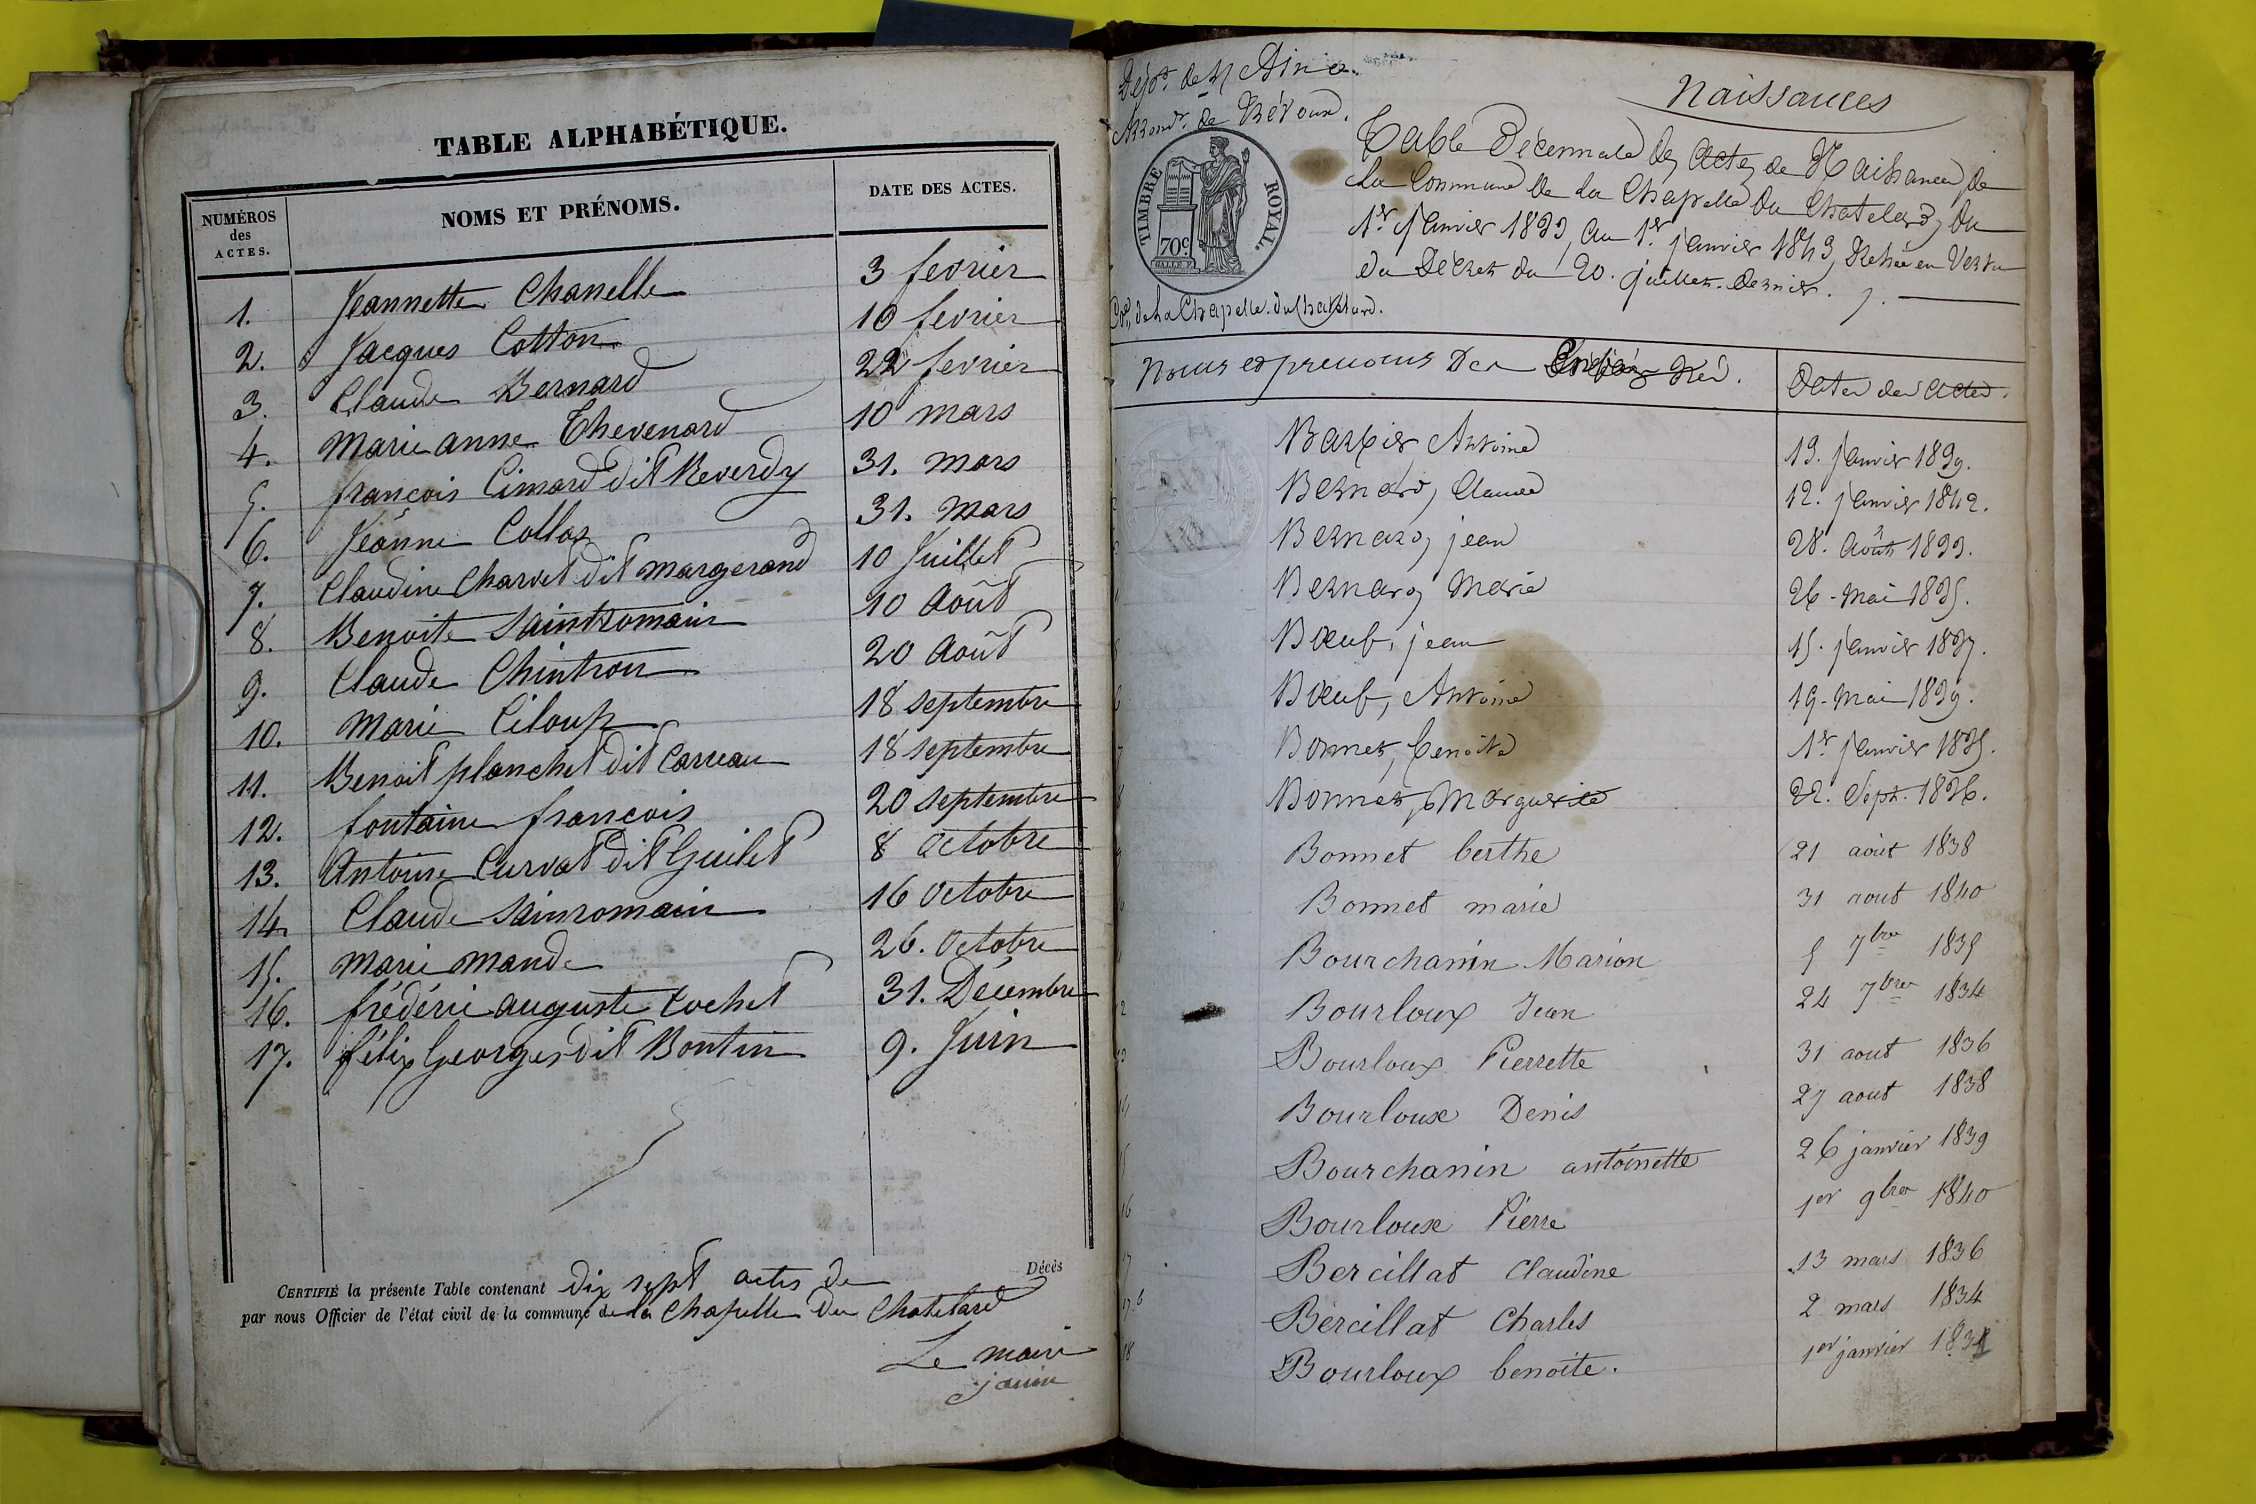 TABLE ALPHABÉTIQUE.
NUMÉROS des ACTES. NOMS ET PRÉNOMS. DATE DES ACTES.
1. Jeannette Chanelle 3 fevrier
2. Jacques Cotton 10 fevrier
3. Claude Bernard 22 fevrier
4. Marie anne Thevenard 10 mars
5. françois Cimard dit Reverdy 31. mars
6. Jeanne Collas 31. Mars
7. Claudine Charvet dit Margerand 10 Juillet
8. Benoite Saintromain 10 Août
9. Claude Chintron 20 Août
10. Marie Ciloup 18 septembre
11. Benoit planchet dit Carreau 18 septembre
12. fontaine françois 20 septembre
13. Antoine Curvat dit Guilet 8 octobre
14. Claude Sainromain 16 octobre
15. Marie mande 26. octobre
16. frédéric auguste Cochet 31. Décembre
17. félix Georges dit Bontin 9. Juin
CERTIFIÉ la présente Table contenant dix sept actes de Décès
par nous Officier de l'état civil de la commune de la Chapelle du Chatelard
Le maire
janin
Naissances
Dépt. de l'Ain
Arrondt. de Trévoux.
TIMBRE ROYAL.
70c
Cne. de la Chapelle du Chatelard.
Table Décennale des Actes de Naissances de
la Commune de la Chapelle du Chatelard, du
1er janvier 1833, au 1er. janvier 1843, en Vertu
du Décret du 20. juillet dernier.
Noms et prenoms Des Nés. Dates des Actes.
Barbier Antoine 13. janvier 1839.
Bernard, Claude 12. janvier 1842.
Bernard, jean 28. Août 1833.
Bernard, Marie 26 - Mai 1835.
Bœuf, jean 15. janvier 1837.
Bœuf, Antoine 19 - Mai 1839.
Bonnet, benoite 1er janvier 1835.
Bonnet, Marguerite 22. Sept. 1836.
Bonnet berthe 21 août 1838
Bonnet marie 31 aout 1840
Bourchanin Marion 5 7bre 1835
2 Bourloux Jean 24 7bre 1834
Bourloux Pierrette 31 aout 1836
Bourloux Denis 27 aout 1838
Bourchanin antoinette 26 janvier 1839
16 Bourloux Pierre 1er 9bre 1840
Bercillat Claudine 13 mars 1836
17 b Bercillat Charles 2 mars 1834
18 Bourloux benoite. 1er janvier